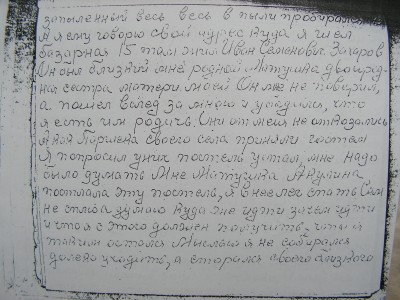 запыленный весь весь в пыли пробирался
А я ему говорю свой курс куда я шел
базарная 15 там жил Иван Семенович Захаров
Он был близкий мне родной Матушка двоюрод-
ная сестра матери моей Он мне не поверил,
а пошел вслед за мною и убедился, что
я есть им родич. Они от меня не отказались
А как Парнена своего села приняли гостем
Я попросил у них постель устал, мне надо
было думать Мне Матушка Акулина
постлала эту постель, я в нее лег спать Сам
не сплю а думаю куда же идти зачем идти
и что я с этого должен получить, что я
таким остался Мыслью я не собирался
далеко уходить, а старался своего близкого